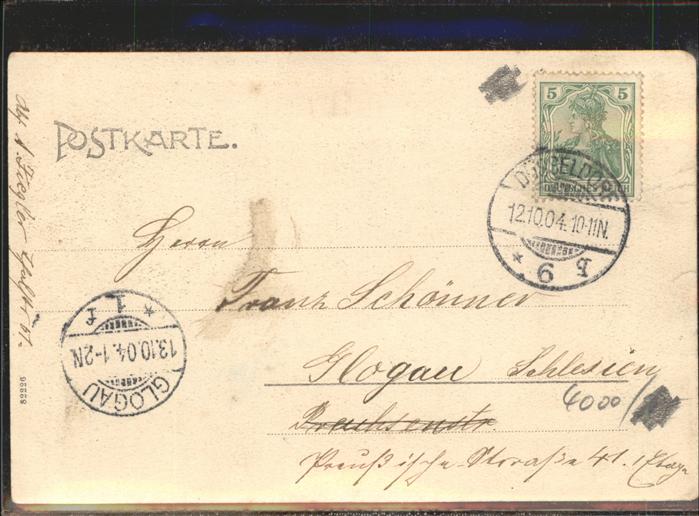 POSTKARTE.
5 5
DEUTSCHES REICH
DÜSSELDORF
12.10.04. 10-11N.
* 9 b
Herrn
Franz Schönner
Glogau Schlesien
4000/
Preußische-Strasse 41. I Etage
* 1 f
13.10.04. 1-2N.
GLOGAU
Abs. A. Ziegler
82226